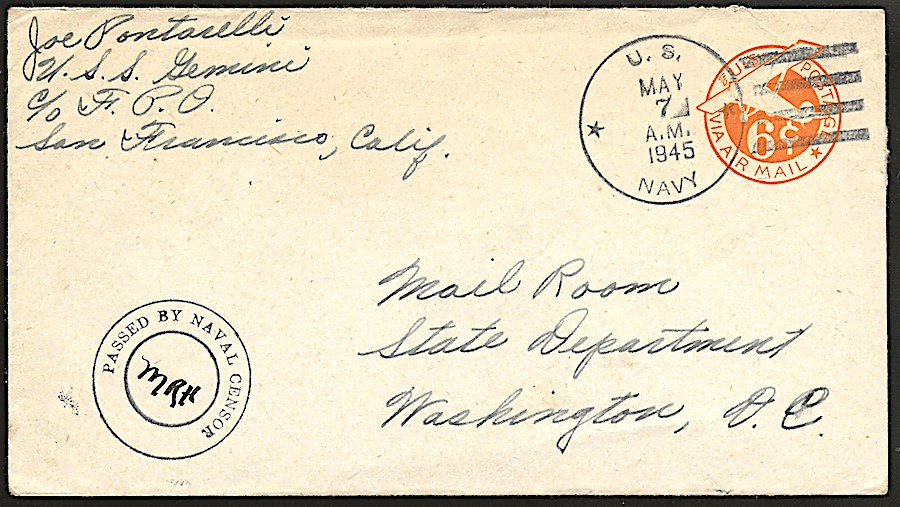 Joe Pontarelli
U.S.S. Gemini
c/o F.P.O.
San Francisco, Calif.
U.S.
MAY
7
A.M.
1945
NAVY
U.S. POSTAGE
6¢
VIA AIR MAIL
Mail Room
State Department
Washington, D.C.
PASSED BY NAVAL CENSOR